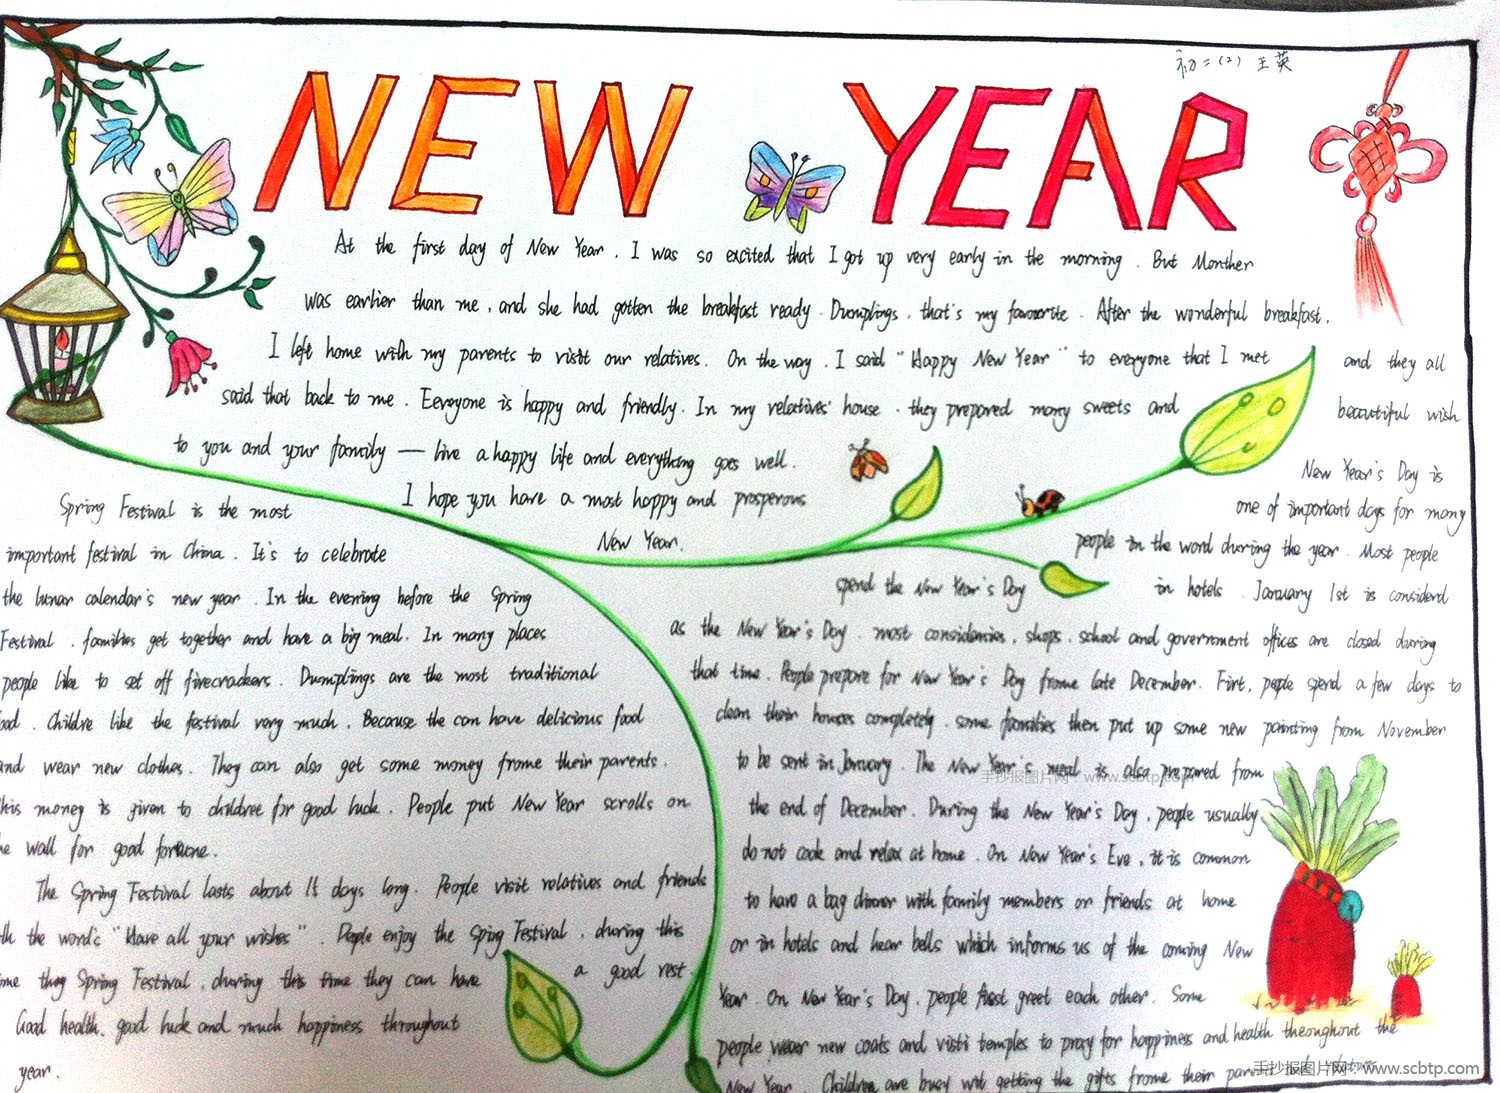 初二(2) 王英
NEW YEAR
At the first day of New Year, I was so excited that I got up very early in the morning. But Monther
was earlier than me, and she had gotten the breakfast ready. Dumplings, that's my favourite. After the wonderful breakfast,
I left home with my parents to visit our relatives. On the way, I said "Happy New Year" to everyone that I met and they all
said that back to me. Eeryone is happy and friendly. In my relatives' house, they prepared many sweets and beautiful wish
to you and your family — live a happy life and everything goes well.
I hope you have a most happy and prosperous
New Year.
Spring Festival is the most
important festival in China. It's to celebrate
the lunar calendar's new year. In the evening before the Spring
Festival, families get together and have a big meal. In many places
people like to set off firecrackers. Dumplings are the most traditional
ood. Childre like the festival very much. Because the can have delicious food
and wear new clothes. They can also get some money frome their parents.
his money is given to children for good luck. People put New Year scrolls on
he wall for good fortune.
The Spring Festival lasts about 15 days long. People visit relatives and friends
th the word's "Have all your wishes". People enjoy the Sping Festival, during this
me they Spring Festival, during this time they can have a good rest.
Good health, good luck and much happiness throughout
year.
New Year's Day is
one of important days for many
people in the word during the year. Most people
spend the New Year's Day in hotels. January 1st is considerd
as the New Year's Day. most, shops, school and government offices are closed during
that time. People prepare for New Year's Day frome late December. Firt, people spend a few days to
clean their houses completely. some families then put up some new painting from November
to be sent in January. The New Year's meal is also prepared from
the end of December. During the New Year's Day, people usually
do not cook and relax at home. On New Year's Eve, it is common
to have a bag dinner with family members or friends at home
or in hotels and hear bells which informs us of the coming New
Year. On New Year's Day, people fisst greet each other. Some
people wear new coats and visti temples to pray for happiness and health theonghout the
New Year. Children are busy wit getting the gifts frome their
手抄报图片网 www.scbtp.com
手抄报图片网 www.scbtp.com